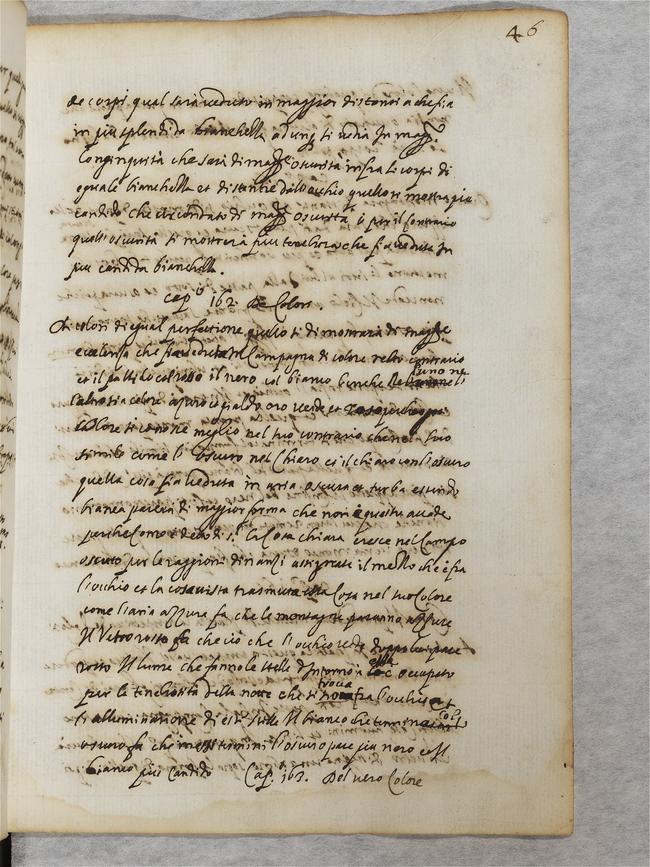 46
de corpi qual sarà veduto in maggior distantia che sia
in piu splendida bianchezza adunq. ti uedrà In magg.
longinquità che sarà di magg. oscurità infra li corpi di
equale bianchezza et distantie dall'occhio quello si mostra piu
candido che è circondato di magg. oscurità è per il contrario
quell'oscurità si mostrerà piu tenebrosa che sia veduta In
piu candida bianchezza.
cap.° 162. De Colori.
Di colori di equal perfectione quello si dimostrarà di magg.
excelenza che sia veduto In Campagna di colore retto contrario
et il pallido col rosso il nero col bianco benche
colore azurro è giallo oro verde et rosso
Colore si conosce meglio nel suo contrario che nel suo
simile come l'oscuro nel Chiaro et il chiaro con l'oscuro
quella cosa sia veduta in aria oscura et turba essendo
bianca parerà di maggior forma che non è questo accade
perche come è detto di s.ª la Cosa chiara cresce nel Campo
oscuro per le raggioni dinanzi assignate il mezzo che è fra
l'occhio et la cosa vista trasmuta essa Cosa nel suo Colore
come l'aria azzura fa che le montagne paranno azzure
Il Vetro rosso fa che ciò che l'occhio vede doppo lui pare
rosso Il lume che fanno le stelle d'Intorno a esse è occupato
per la tenebrosità della notte che si trova fra l'occhio et
l'alluminatione di esse stelle Il bianco che termina col
oscuro fa che in essi termini l'oscuro pare piu nero e Il
bianco piu candido Cap.° 163. Del vero Colore